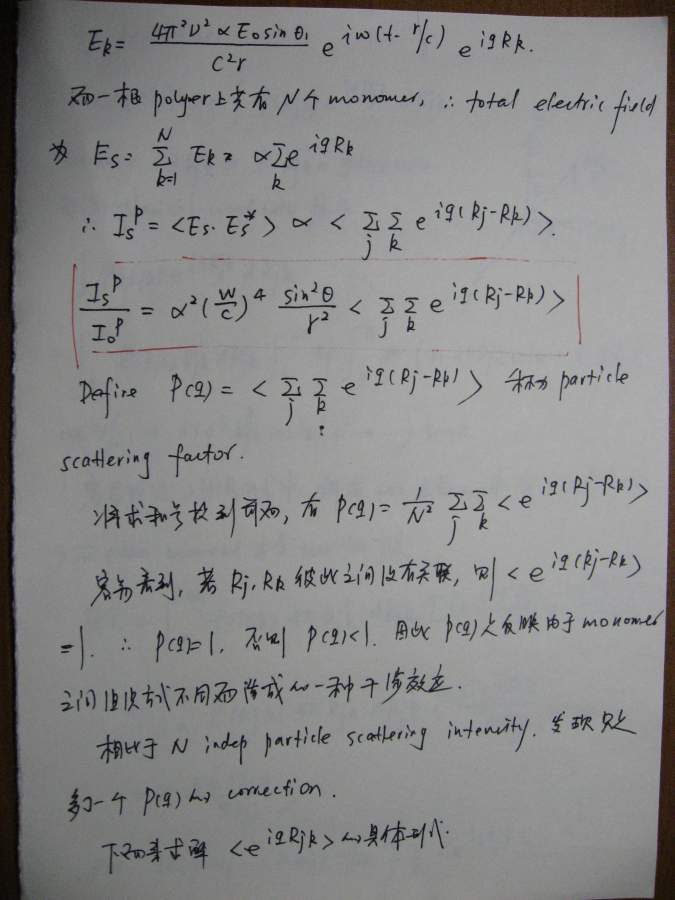 E_k = \frac{4π²ν² α E₀ sin θ₁}{c² r} e^{iω(t - r/c)} e^{iqR_k}.
而一根 polymer 上共有 N个 monomer, ∴ total electric field
为 E_s = \sum_{k=1}^{N} E_k = α \sum_k e^{iqR_k}
∴ I_s^p = <E_s · E_s^*> ∝ < \sum_j \sum_k e^{iq(R_j - R_k)} >.
\frac{I_s^p}{I_0^p} = α² (\frac{w}{c})⁴ \frac{sin²θ}{r²} < \sum_j \sum_k e^{iq(R_j - R_k)} >
Define P(q) = < \sum_j \sum_k e^{iq(R_j - R_k)} > 称为 particle
scattering factor.
将求和号提到前面, 有 P(q) = \frac{1}{N²} \sum_j \sum_k < e^{iq(R_j - R_k)} >
容易看到, 若 R_j, R_k 彼此之间没有关联, 则 < e^{iq(R_j - R_k)} >
= 1. ∴ P(q)=1, 否则 P(q)<1. 因此 P(q) 是反映由于 monomer
之间组织方式不同而造成的一种干涉效应.
相比于 N indep particle scattering intensity, 发现只是
多了一个 P(q) 的 correction.
下面来求解 <e^{iqR_{jk}}> 的具体形式.